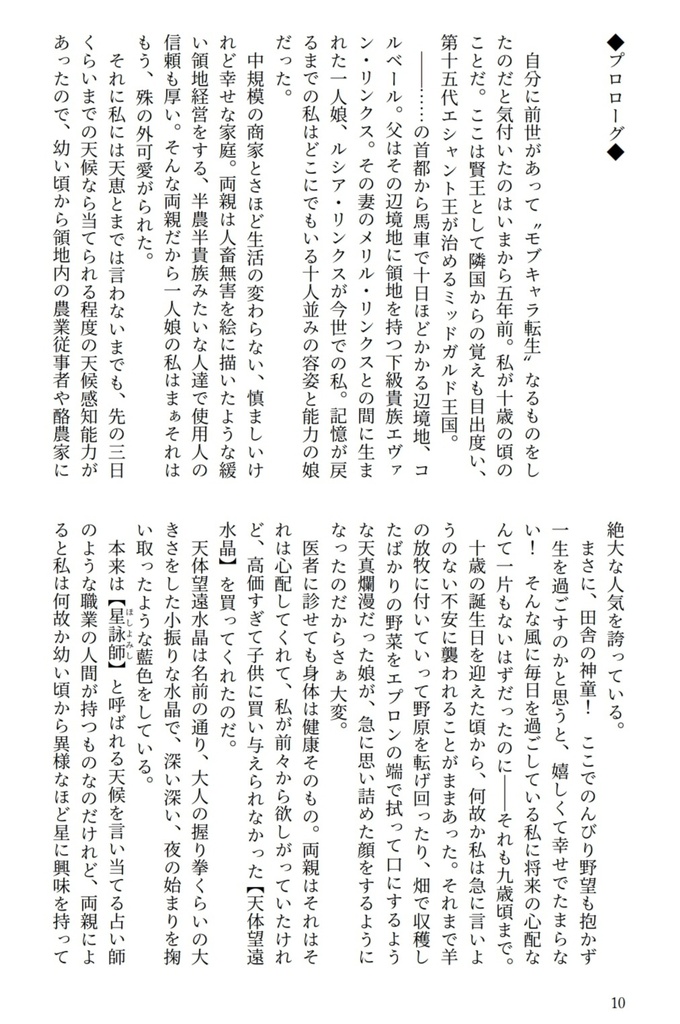 ◆プロローグ◆
自分に前世があって〝モブキャラ転生〟なるものをし
たのだと気付いたのはいまから五年前。私が十歳の頃の
ことだ。ここは賢王として隣国からの覚えも目出度い、
第十五代エシャント王が治めるミッドガルド王国。
――……の首都から馬車で十日ほどかかる辺境地、コ
ルベール。父はその辺境地に領地を持つ下級貴族エヴァ
ン・リンクス。その妻のメリル・リンクスとの間に生ま
れた一人娘、ルシア・リンクスが今世での私。記憶が戻
るまでの私はどこにでもいる十人並みの容姿と能力の娘
だった。
中規模の商家とさほど生活の変わらない、慎ましいけ
れど幸せな家庭。両親は人畜無害を絵に描いたような緩
い領地経営をする、半農半貴族みたいな人達で使用人の
信頼も厚い。そんな両親だから一人娘の私はまぁそれは
もう、殊の外可愛がられた。
それに私には天恵とまでは言わないまでも、先の三日
くらいまでの天候なら当てられる程度の天候感知能力が
あったので、幼い頃から領地内の農業従事者や酪農家に
絶大な人気を誇っている。
まさに、田舎の神童！　ここでのんびり野望も抱かず
一生を過ごすのかと思うと、嬉しくて幸せでたまらな
い！　そんな風に毎日を過ごしている私に将来の心配な
んて一片もないはずだったのに――それも九歳頃まで。
十歳の誕生日を迎えた頃から、何故か私は急に言いよ
うのない不安に襲われることがままあった。それまで羊
の放牧に付いていって野原を転げ回ったり、畑で収穫し
たばかりの野菜をエプロンの端で拭って口にするよう
な天真爛漫だった娘が、急に思い詰めた顔をするように
なったのだからさぁ大変。
医者に診せても身体は健康そのもの。両親はそれはそ
れは心配してくれて、私が前々から欲しがっていたけれ
ど、高価すぎて子供に買い与えられなかった【天体望遠
水晶】を買ってくれたのだ。
天体望遠水晶は名前の通り、大人の握り拳くらいの大
きさをした小振りな水晶で、深い深い、夜の始まりを掬
い取ったような藍色をしている。
本来は【星詠師】と呼ばれる天候を言い当てる占い師
ほしよみし
のような職業の人間が持つものなのだけれど、両親によ
ると私は何故か幼い頃から異様なほど星に興味を持って
10